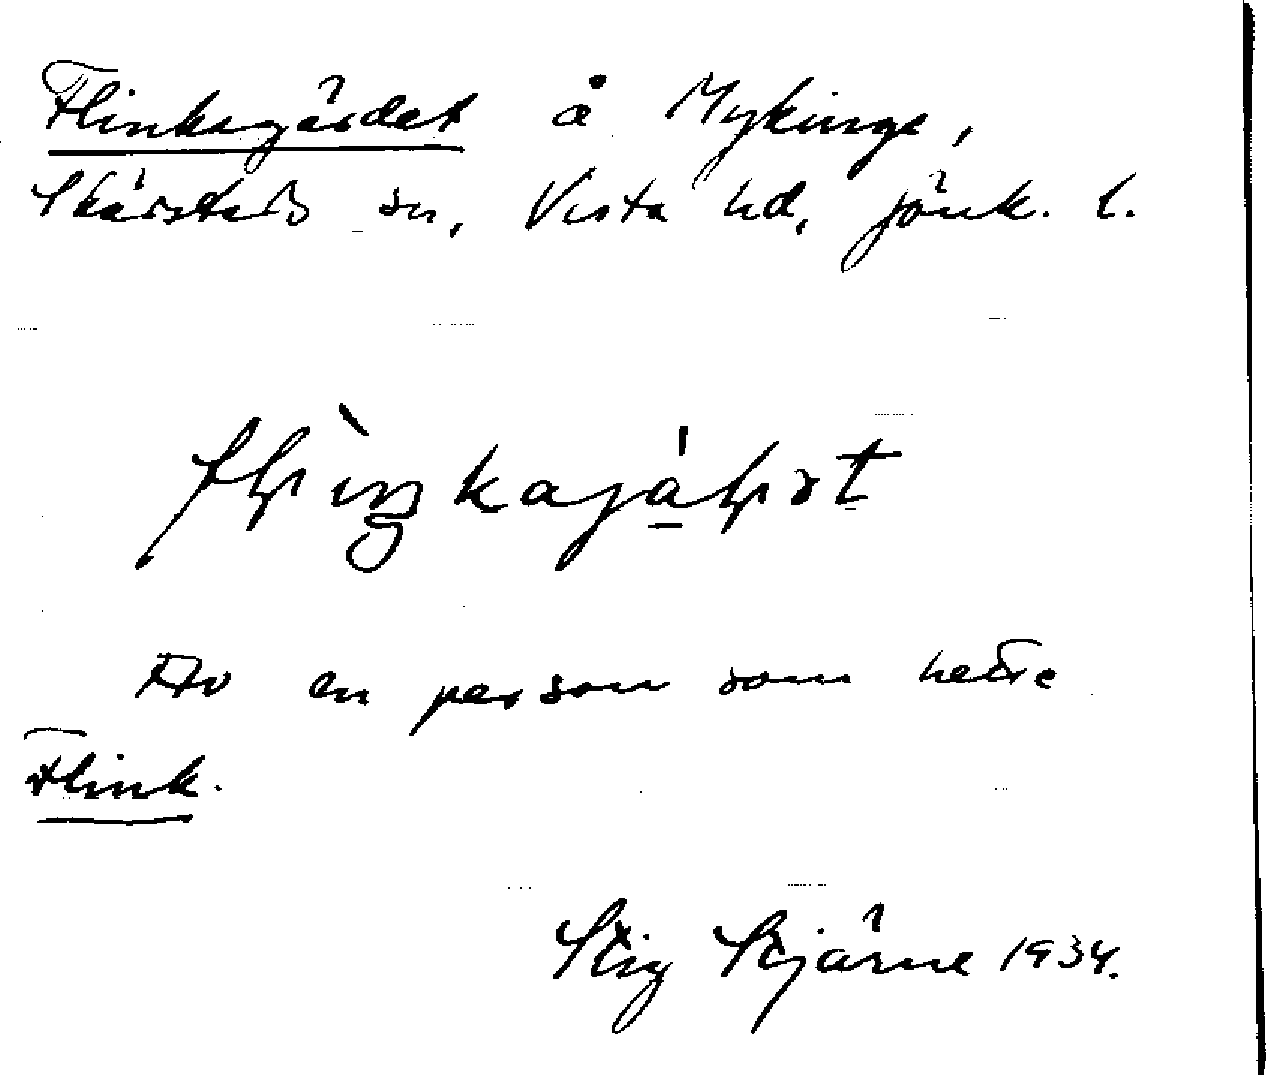 Flinkagärdet å Mykinge,
Skärstads sn, Vista hd, Jönk. l.
Av en person som hette
Flink.
Stig Stjärne 1934.